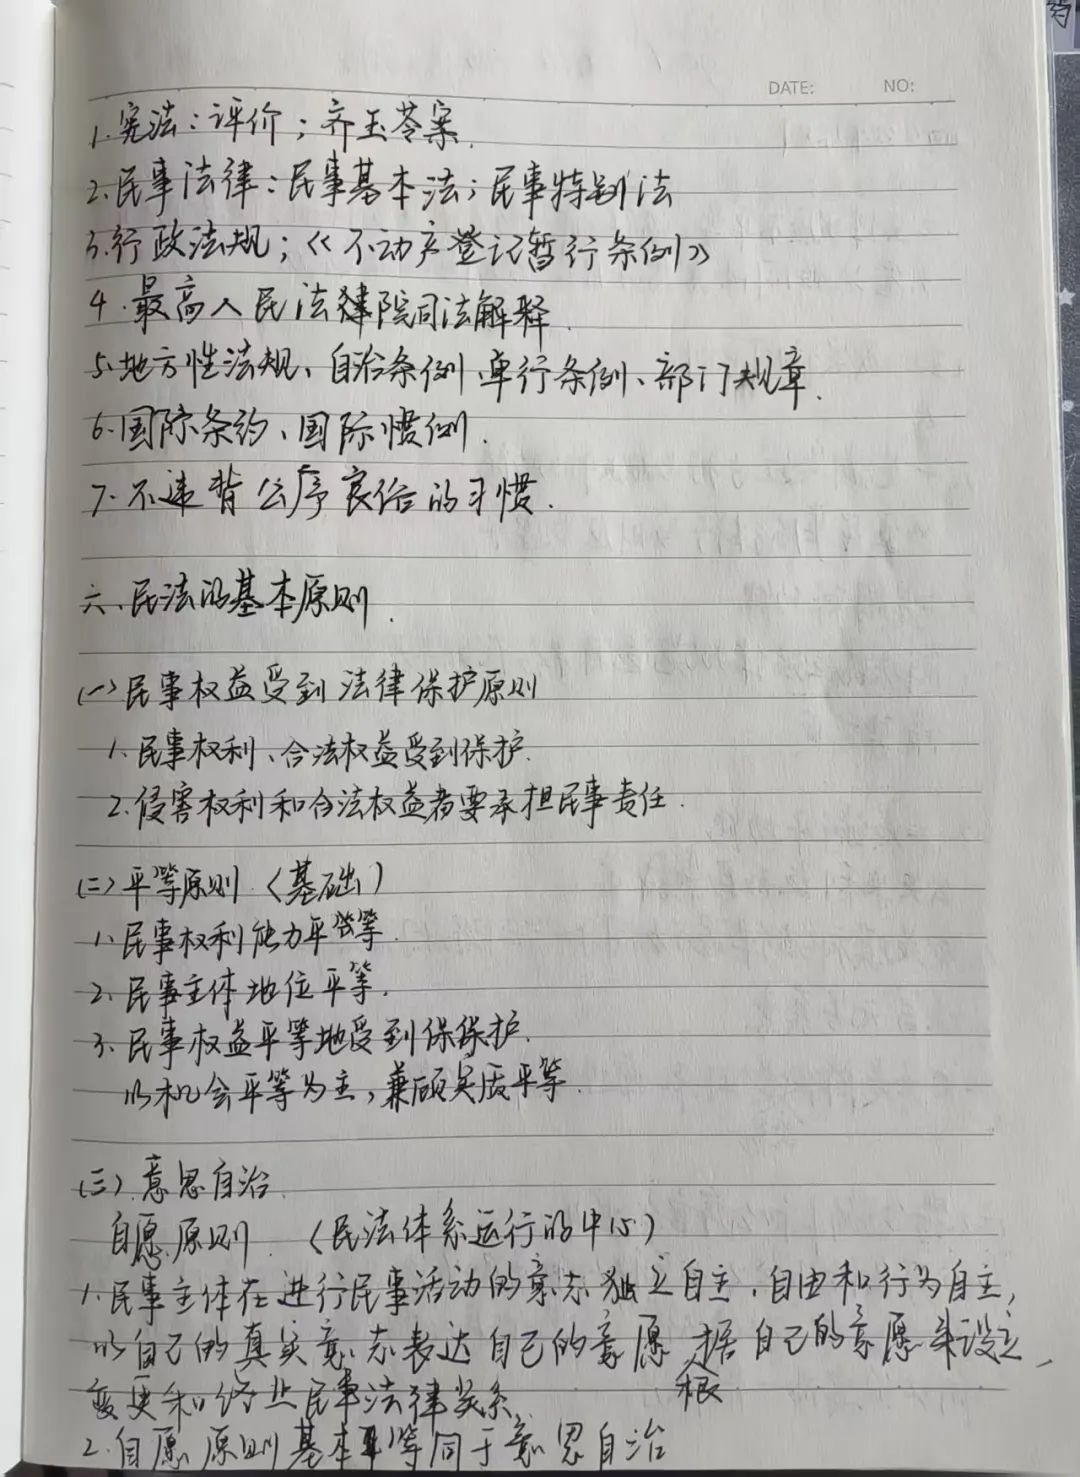 DATE: NO:
1.宪法：评价；齐玉苓案.
2.民事法律：民事基本法；民事特别法
3.行政法规；《不动产登记暂行条例》
4.最高人民法院司法解释.
5.地方性法规、自治条例、单行条例、部门规章.
6.国际条约、国际惯例.
7.不违背公序良俗的习惯.
六、民法的基本原则.
(一)民事权益受到法律保护原则
1.民事权利、合法权益受到保护.
2.侵害权利和合法权益者要承担民事责任.
(二)平等原则.(基础)
1.民事权利能力平等.
2.民事主体地位平等.
3.民事权益平等地受到保保护.
以机会平等为主，兼顾实质平等.
(三).意思自治.
自愿原则.(民法体系运行的中心)
1.民事主体在进行民事活动的意志独立自主、自由和行为自主，
以自己的真实意志表达自己的意愿 根据自己的意愿来设立、
变更和终止民事法律关系.
2.自愿原则基本等同于意思自治